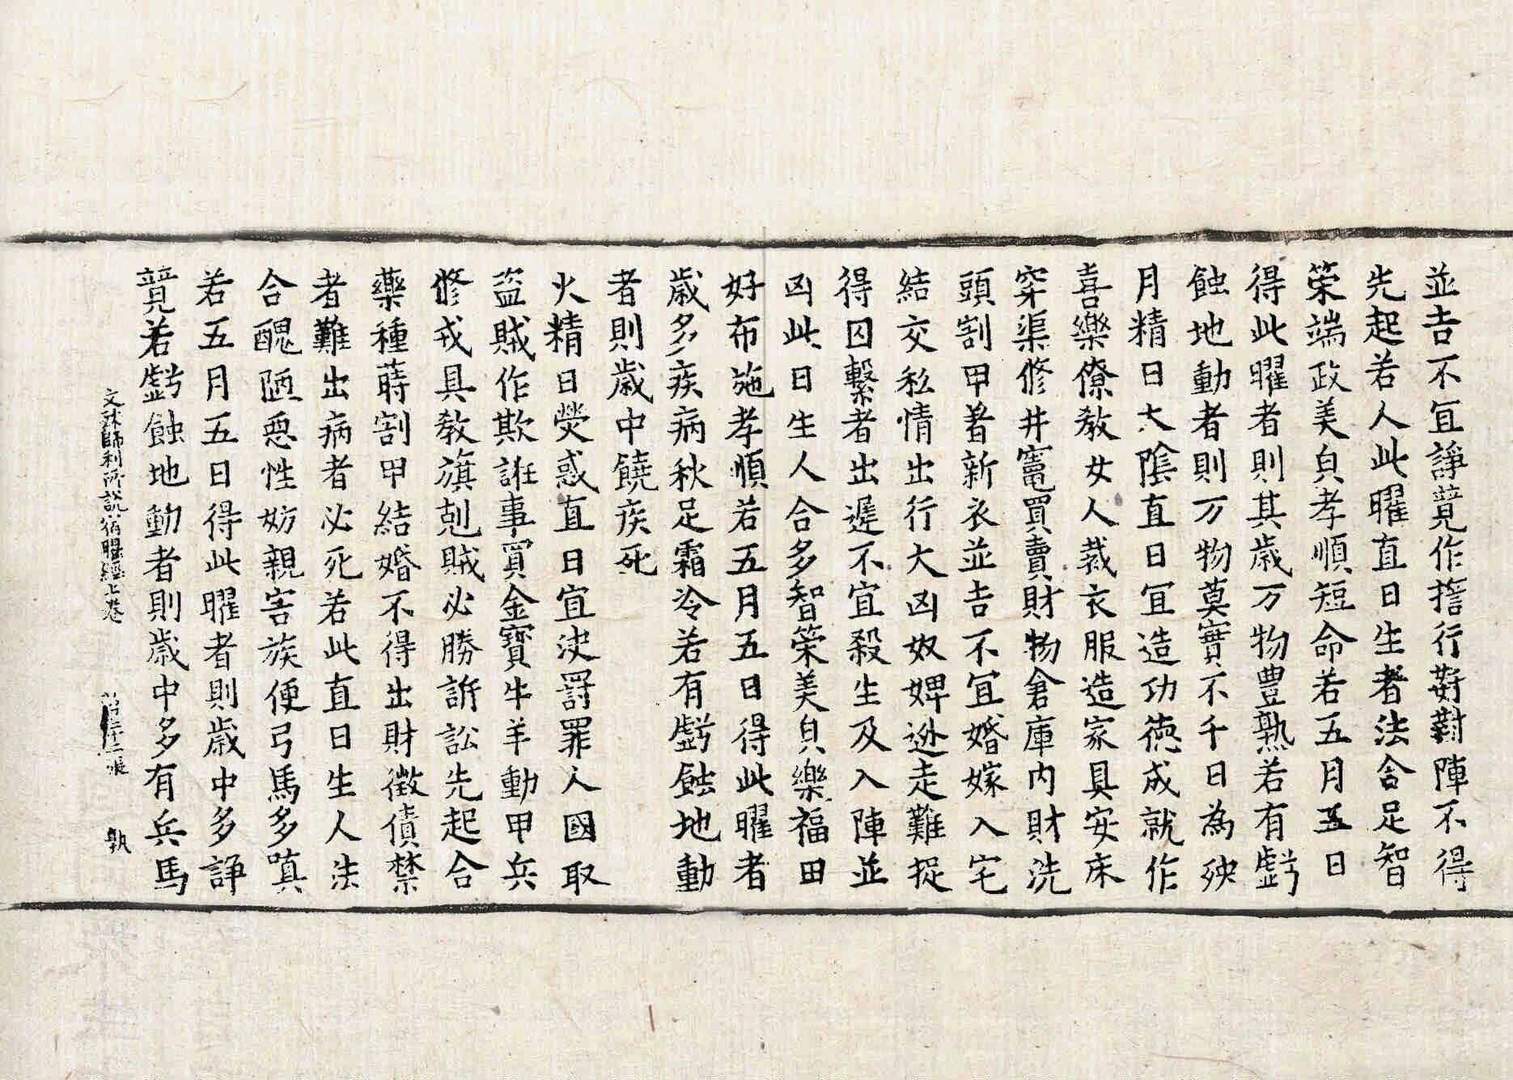 並吉不宜諍競作擔行對對陣不得
先起若人此曜直日生者法含足智
榮端政美皃孝順短命若五月五日
得此曜者則其歳万物豊熟若有虧
蝕地動者則万物莫實不千日為殃
月精日太陰直日冝造功德成就作
喜樂僚教女人裁衣服造家具安床
穿渠修井竃買賣財物倉庫内財洗
頭割甲著新衣並吉不冝婚嫁入宅
結交私情出行大凶奴婢逃走難捉
得囚繫者出遲不宜殺生及入陣並
凶此日生人合多智榮美皃樂福田
好布施孝順若五月五日得此曜者
歳多疾病秋足霜冷若有虧蝕地動
者則歳中饒疾死
火精日熒惑直日宜决罸罪人國取
盗賊作欺誑事買金寳牛羊動甲兵
修戎具教旗剋賊必勝訴訟先起合
藥種蒔割甲結婚不得出財徵債禁
者難出病者必死若此直日生人法
合醜陋惡性妨親害族便弓馬多嗔
若五月五日得此曜者則歳中多諍
競若虧蝕地動者則歳中多有兵馬
文殊師利所説宿曜經上卷 二張